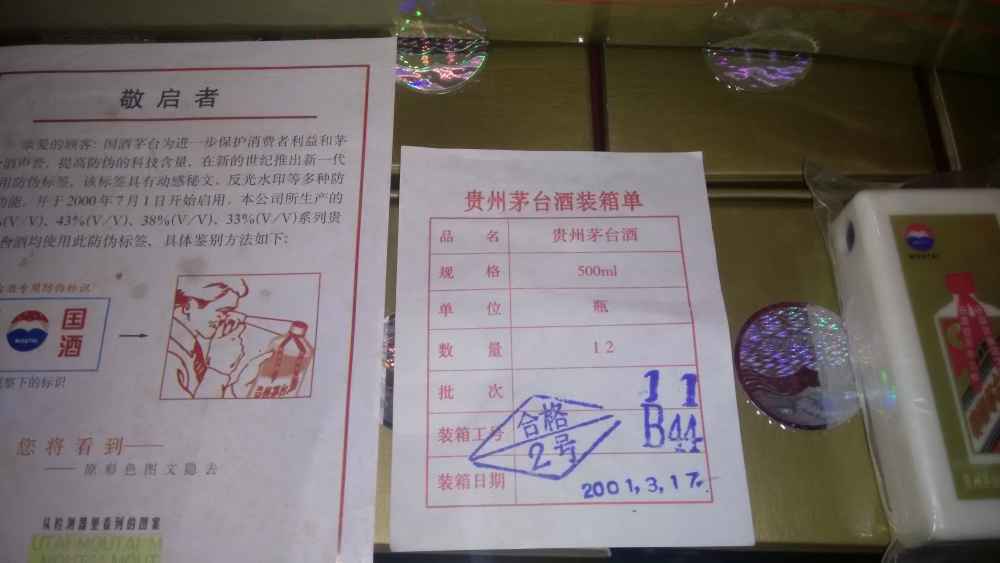 敬启者
亲爱的顾客: 国酒茅台为进一步保护消费者利益和茅
酒声誉, 提高防伪的科技含量, 在新的世纪推出新一代
用防伪标签, 该标签具有动感秘文、反光水印等多种防
功能, 并于2000年7月1日开始启用。本公司所生产的
(V/V)、43%(V/V)、38%(V/V)、33%(V/V)系列贵
酒均使用此防伪标签、具体鉴别方法如下:
专用防伪标识
国酒
MOUTAI
下的标识
您将看到——
——原彩色图文隐去
从检测器里看到的图案
UTAI MOUTAI M
MOUTAI MOUT
贵州茅台酒装箱单
品 名 贵州茅台酒
规 格 500ml
单 位 瓶
数 量 12
批 次 11
装箱工号 B44
合格
2号
装箱日期 2001,3,17.
MOUTAI